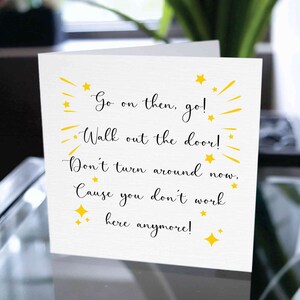 Go on then, go!
Walk out the door!
Don't turn around now,
'Cause you don't work
here anymore!